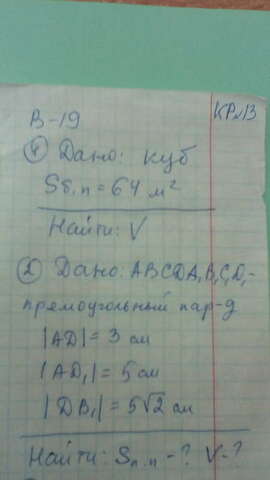 В-19 КР№13
① Дано: куб
Sб.п = 64 м²
Найти: V
② Дано: ABCDA₁B₁C₁D₁-
прямоугольный пар-д
|AD| = 3 см
|AD₁| = 5 см
|DB₁| = 5√2 см
Найти: Sп.п - ? V - ?